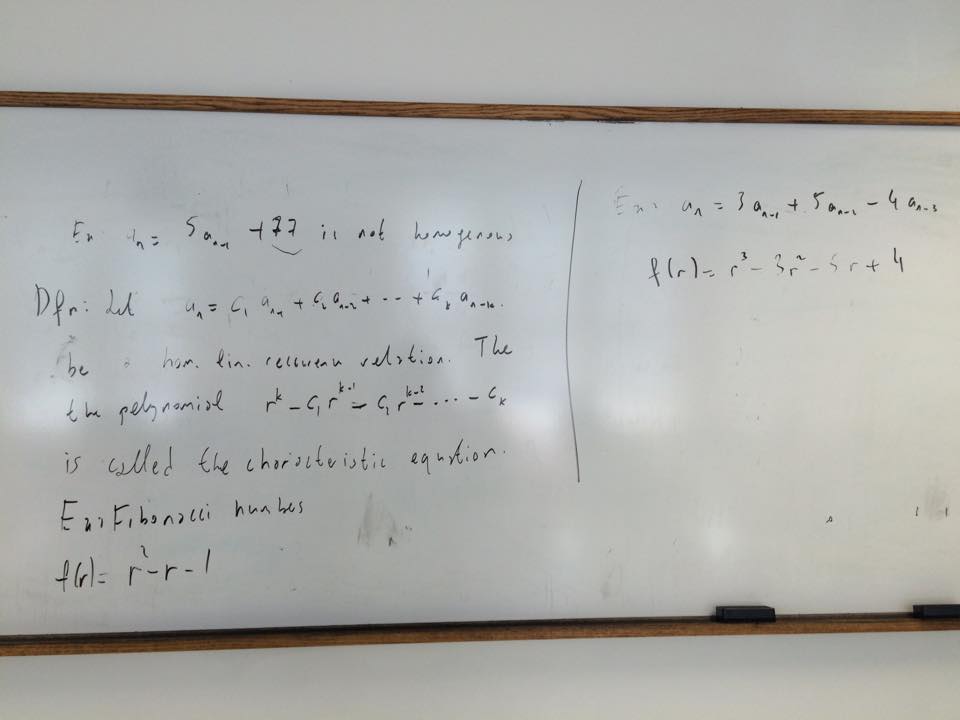 Ex aₙ = 5aₙ₋₁ + 77 is not homogenous
Dfn: Let aₙ = c₁ aₙ₋₁ + c₂ aₙ₋₂ + ... + cₖ aₙ₋ₖ.
be a hom. lin. recurren relation. The
the polynomial rᵏ - c₁ rᵏ⁻¹ - c₂ rᵏ⁻² - ... - cₖ
is called the characteristic equation.
Ex: Fibonacci numbes
f(r) = r² - r - 1
Ex: aₙ = 3aₙ₋₁ + 5aₙ₋₂ - 4aₙ₋₃
f(r) = r³ - 3r² - 5r + 4